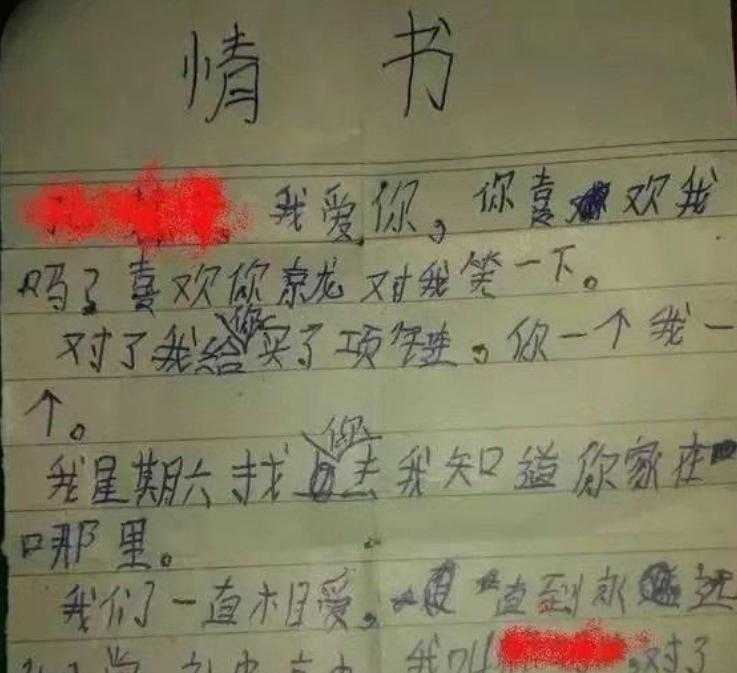 情书
我爱你。你喜欢我
吗？喜欢你就对我笑一下。
对了我给你买了项链。你一个我一
个。
我星期六找你去我知道你家在
哪里。
我们一直相爱。直到永远
我叫 对了